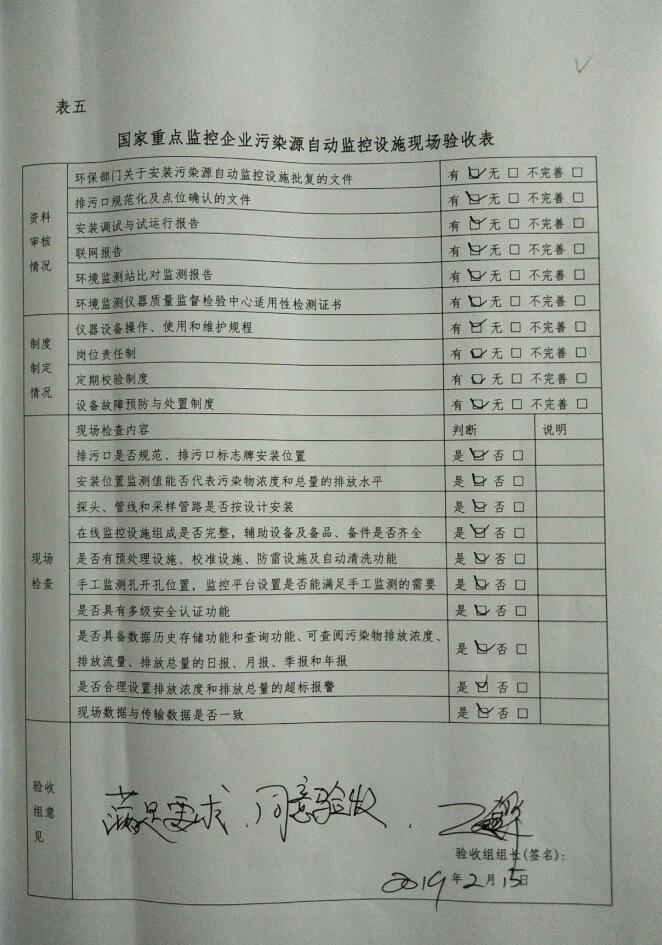 表五
国家重点监控企业污染源自动监控设施现场验收表
资料审核情况
环保部门关于安装污染源自动监控设施批复的文件 有 ☑ 无 □ 不完善 □
排污口规范化及点位确认的文件 有 ☑ 无 □ 不完善 □
安装调试与试运行报告 有 ☑ 无 □ 不完善 □
联网报告 有 ☑ 无 □ 不完善 □
环境监测站比对监测报告 有 ☑ 无 □ 不完善 □
环境监测仪器质量监督检验中心适用性检测证书 有 ☑ 无 □ 不完善 □
制度制定情况
仪器设备操作、使用和维护规程 有 ☑ 无 □ 不完善 □
岗位责任制 有 ☑ 无 □ 不完善 □
定期校验制度 有 ☑ 无 □ 不完善 □
设备故障预防与处置制度 有 ☑ 无 □ 不完善 □
现场检查
现场检查内容 判断 说明
排污口是否规范、排污口标志牌安装位置 是 ☑ 否 □
安装位置监测值能否代表污染物浓度和总量的排放水平 是 ☑ 否 □
探头、管线和采样管路是否按设计安装 是 ☑ 否 □
在线监控设施组成是否完整，辅助设备及备品、备件是否齐全 是 ☑ 否 □
是否有预处理设施、校准设施、防雷设施及自动清洗功能 是 ☑ 否 □
手工监测孔开孔位置，监控平台设置是否能满足手工监测的需要 是 ☑ 否 □
是否具有多级安全认证功能 是 ☑ 否 □
是否具备数据历史存储功能和查询功能、可查阅污染物排放浓度、
排放流量、排放总量的日报、月报、季报和年报 是 ☑ 否 □
是否合理设置排放浓度和排放总量的超标报警 是 ☑ 否 □
现场数据与传输数据是否一致 是 ☑ 否 □
验收组意见
满足要求，同意验收.
验收组组长(签名):
2019年2月15日